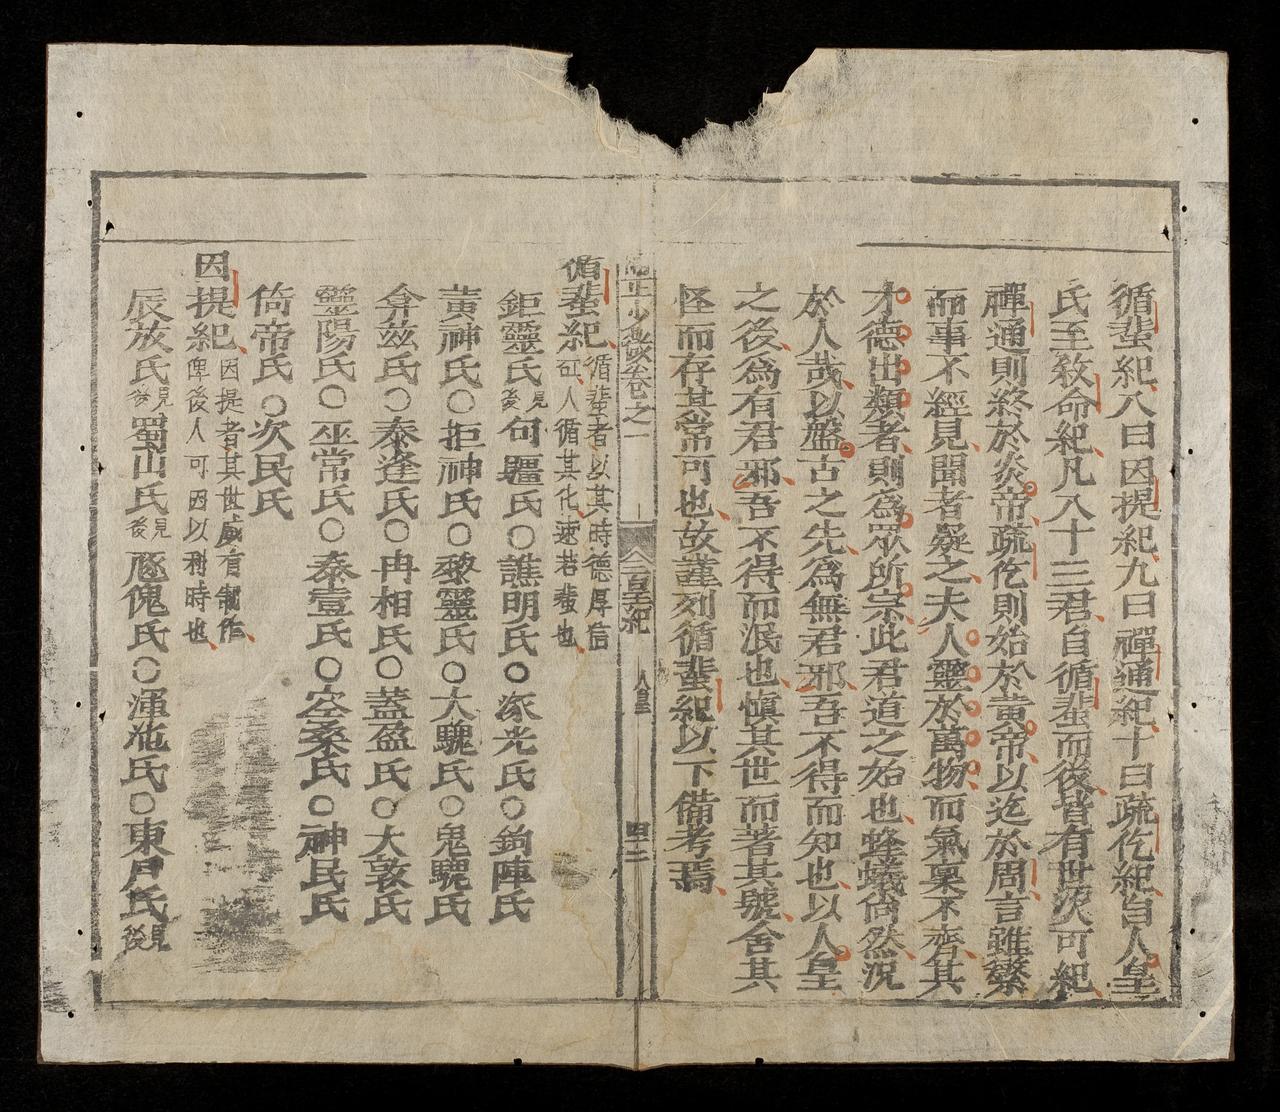 循蜚紀八曰因提紀九曰禪通紀十曰疏仡紀自人皇
氏至敘命紀凡八十三君自循蜚而後皆有世次可紀
禪通則終於炎帝疏仡則始於黃帝以迄於周言雖繁
而事不經見聞者疑之夫人靈於萬物而氣稟不齊其
才德出類者則為眾所宗此君道之始也蜂蟻尙然況
於人哉以盤古之先為無君邪吾不得而知也以人皇
之後為有君邪吾不得而泯也慎其世而著其號舍其
怪而存其常可也故謹列循蜚紀以下備考焉
卷之一
三皇紀
人皇
四十二
循蜚紀
循蜚者以其時德厚信
可人循其化速若蜚也
鉅靈氏見後句疆氏○譙明氏○涿光氏○鉤陣氏
黃神氏○拒神氏○犂靈氏○大騩氏○鬼騩氏
弇茲氏○泰逢氏○冉相氏○蓋盈氏○大敦氏
靈陽氏○巫常氏○泰壹氏○空桑氏○神民氏
倚帝氏○次民氏
因提紀
因提者其世咸有制作
俾後人可因以利時也
辰放氏見後蜀山氏見後豗傀氏○渾沌氏○東戶氏見後